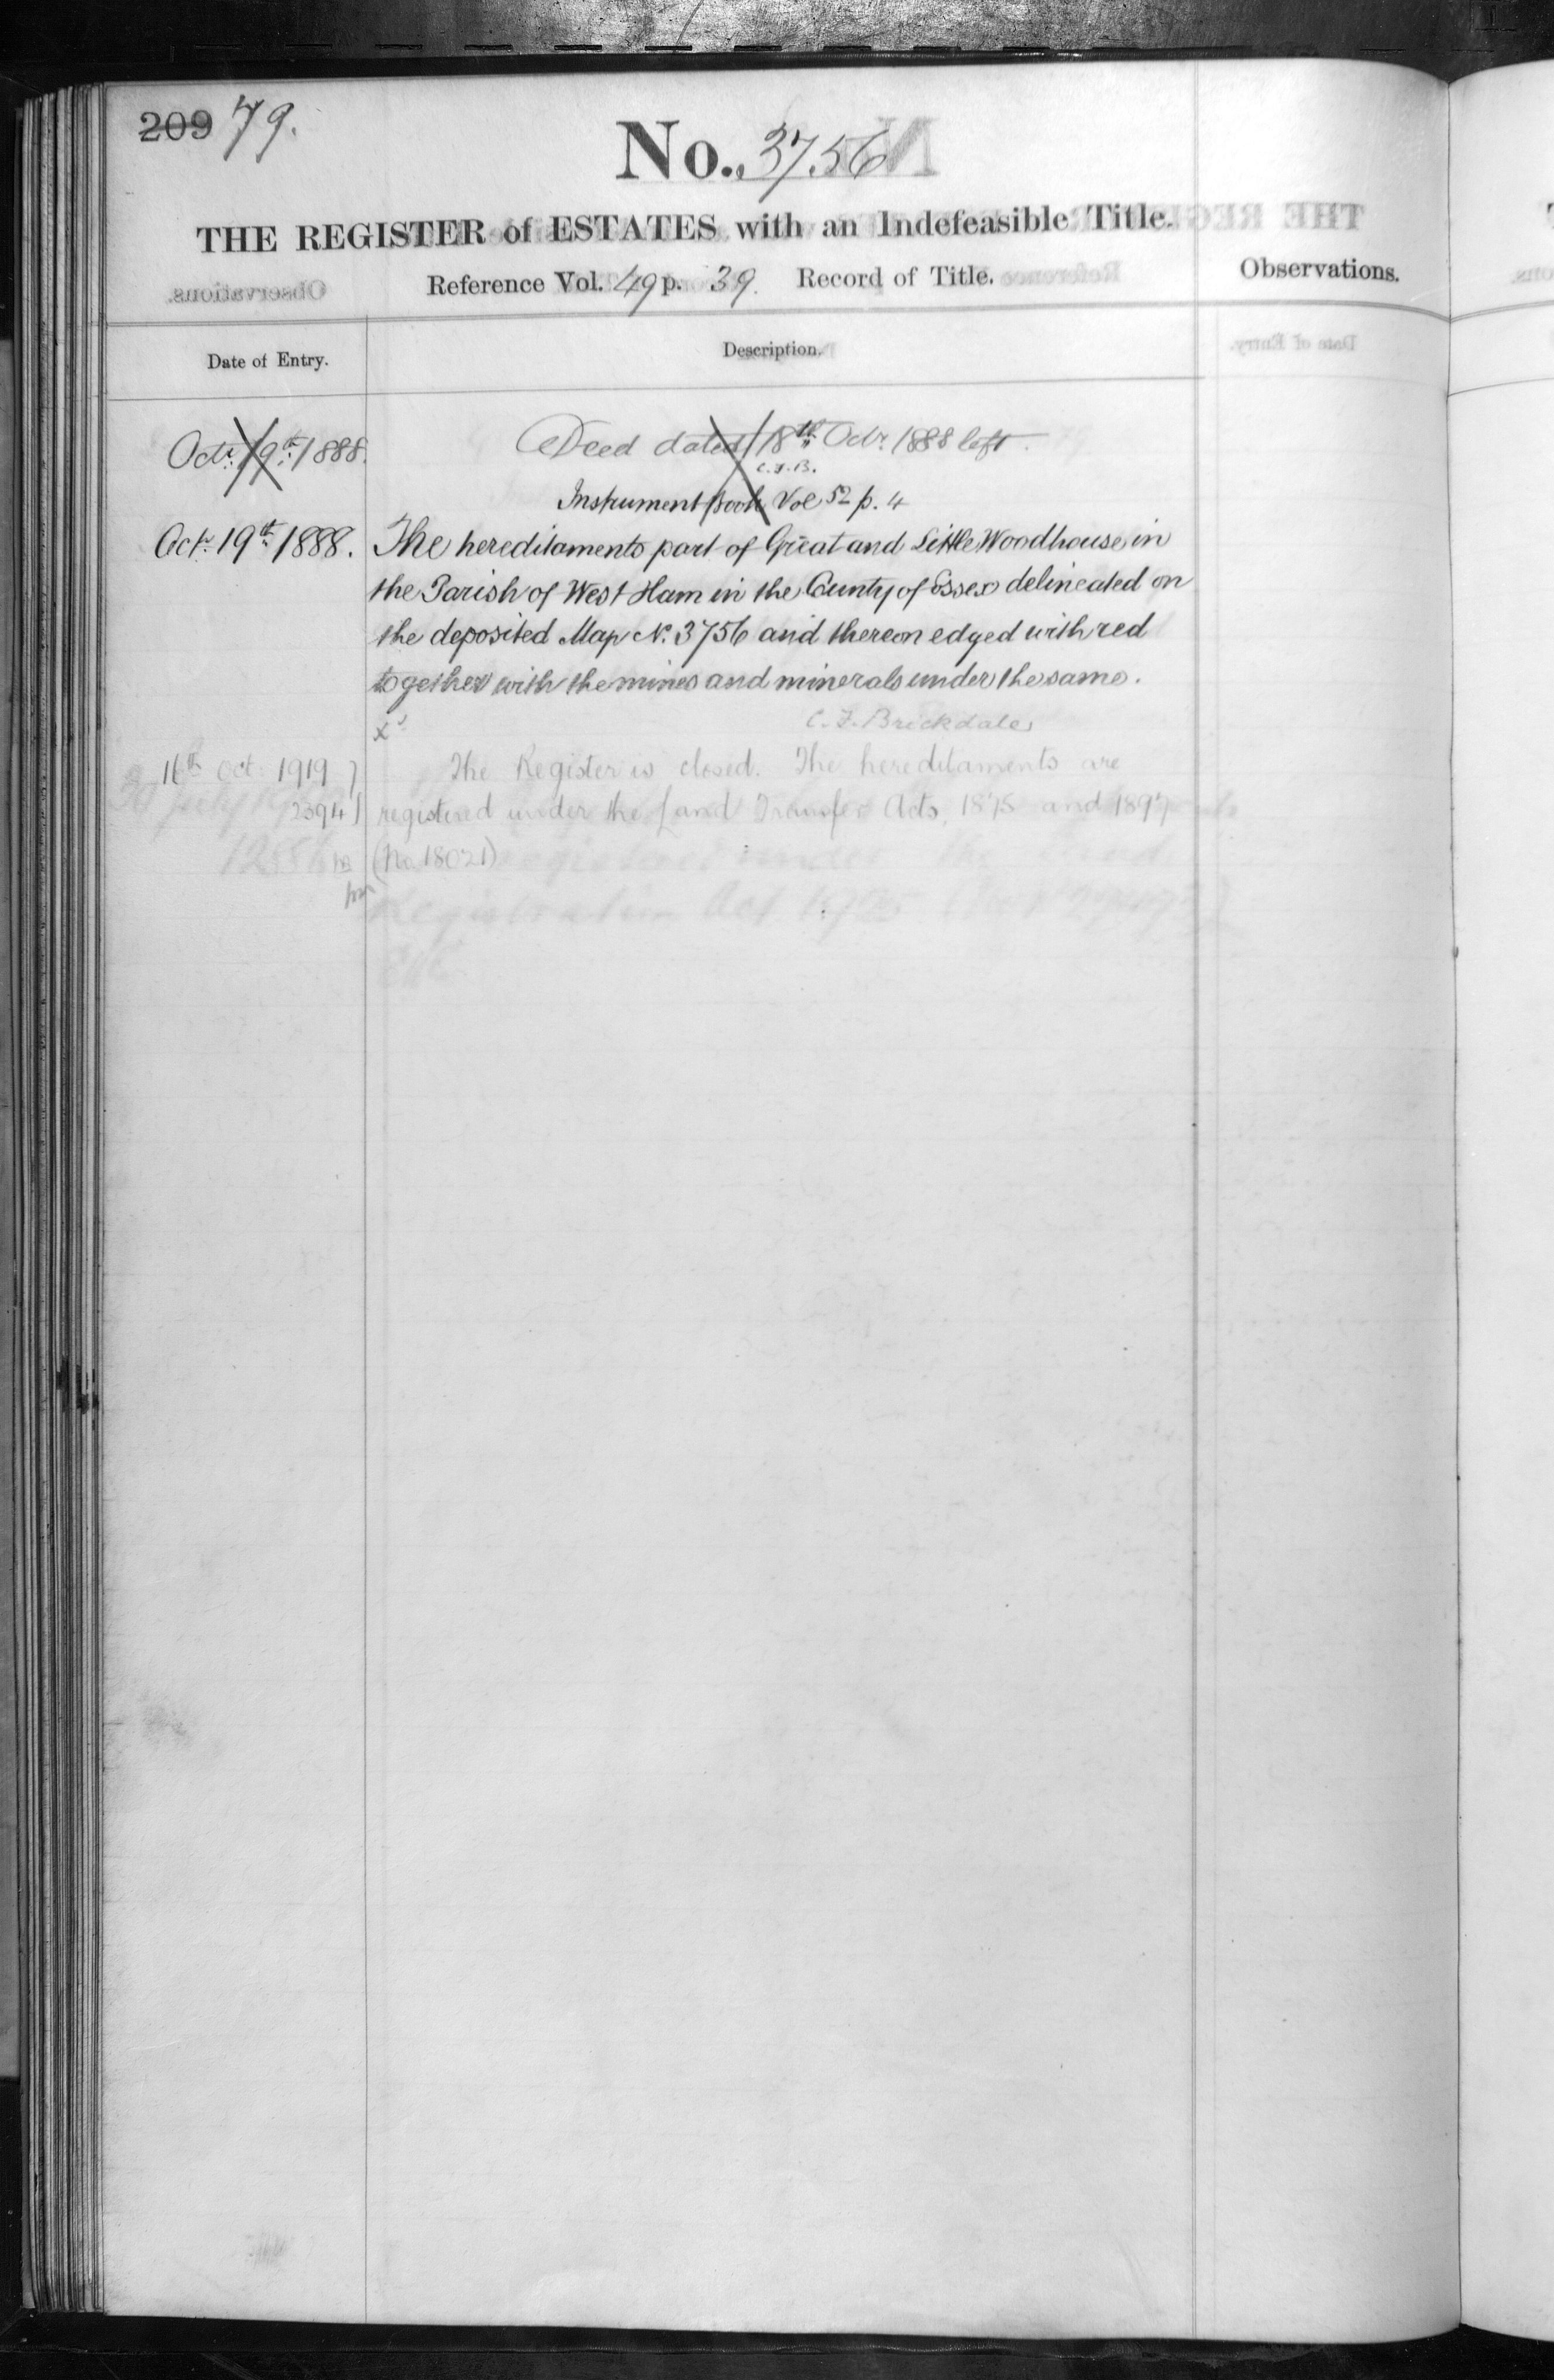 209 79.
No. 3756
THE REGISTER of ESTATES with an Indefeasible Title.
Reference Vol. 49 p. 39. Record of Title.
Observations.
Date of Entry.
Description.
Octr. 19th 1888.
Deed dated 18th Octr. 1888 left.
C.F.B.
Instrument Book Vol 52 p. 4
Octr. 19th 1888.
The hereditaments part of Great and Little Woodhouse in
the Parish of West Ham in the County of Essex delineated on
the deposited Map No. 3756 and thereon edged with red
together with the mines and minerals under the same.
C. F. Brickdale
16th Oct. 1919
2394
The Register is closed. The hereditaments are
registered under the Land Transfer Acts, 1875 and 1897
(No. 18021)